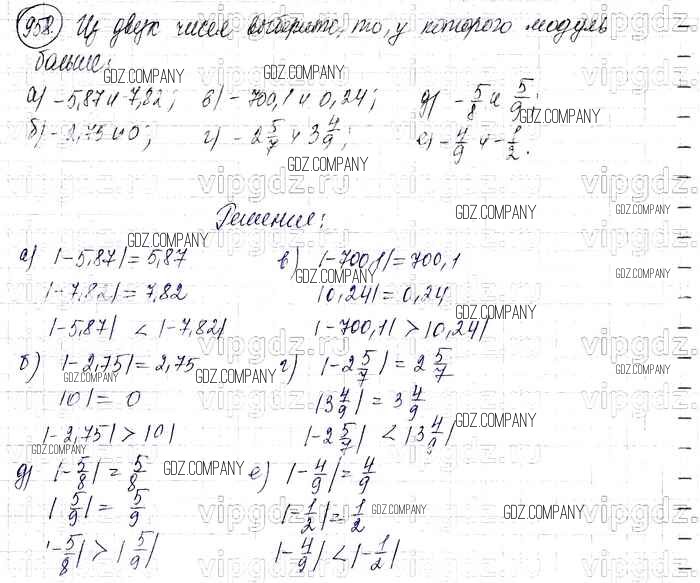 958. Из двух чисел выберите, то, у которого модуль
больше:
а) -5,87 и -7,82; в) -700,1 и 0,24; д) -5/8 и 5/9;
б) -2,75 и 0; г) -2 5/7 и 3 4/9; е) -4/9 и -1/2.
Решение:
а) |-5,87| = 5,87 в) |-700,1| = 700,1
|-7,82| = 7,82 |0,24| = 0,24
|-5,87| < |-7,82| |-700,1| > |0,24|
б) |-2,75| = 2,75 г) |-2 5/7| = 2 5/7
|0| = 0 |3 4/9| = 3 4/9
|-2,75| > |0| |-2 5/7| < |3 4/9|
д) |-5/8| = 5/8 е) |-4/9| = 4/9
|5/9| = 5/9 |-1/2| = 1/2
|-5/8| > |5/9| |-4/9| < |-1/2|
GDZ.COMPANY
vipgdz.ru